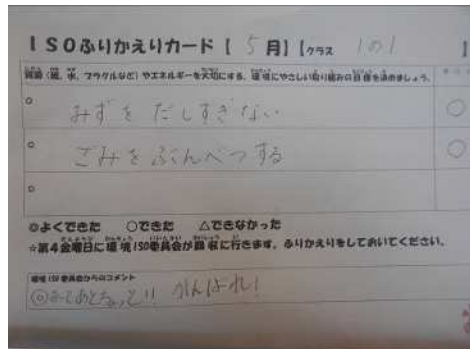 ISOふりかえりカード【5月】【クラス 1の1 】
資源（紙、水、プラグルなど）やエネルギーを大切にする、環境にやさしい取り組みの目標を決めましょう。
みずをだしすぎない ○
ごみをぶんべつする ○
◎よくできた ○できた △できなかった
☆第4金曜日に環境ISO委員会が回収に行きます。ふりかえりをしておいてください。
環境ISO委員会からのコメント
◎まであとちょっと!! がんばれ!